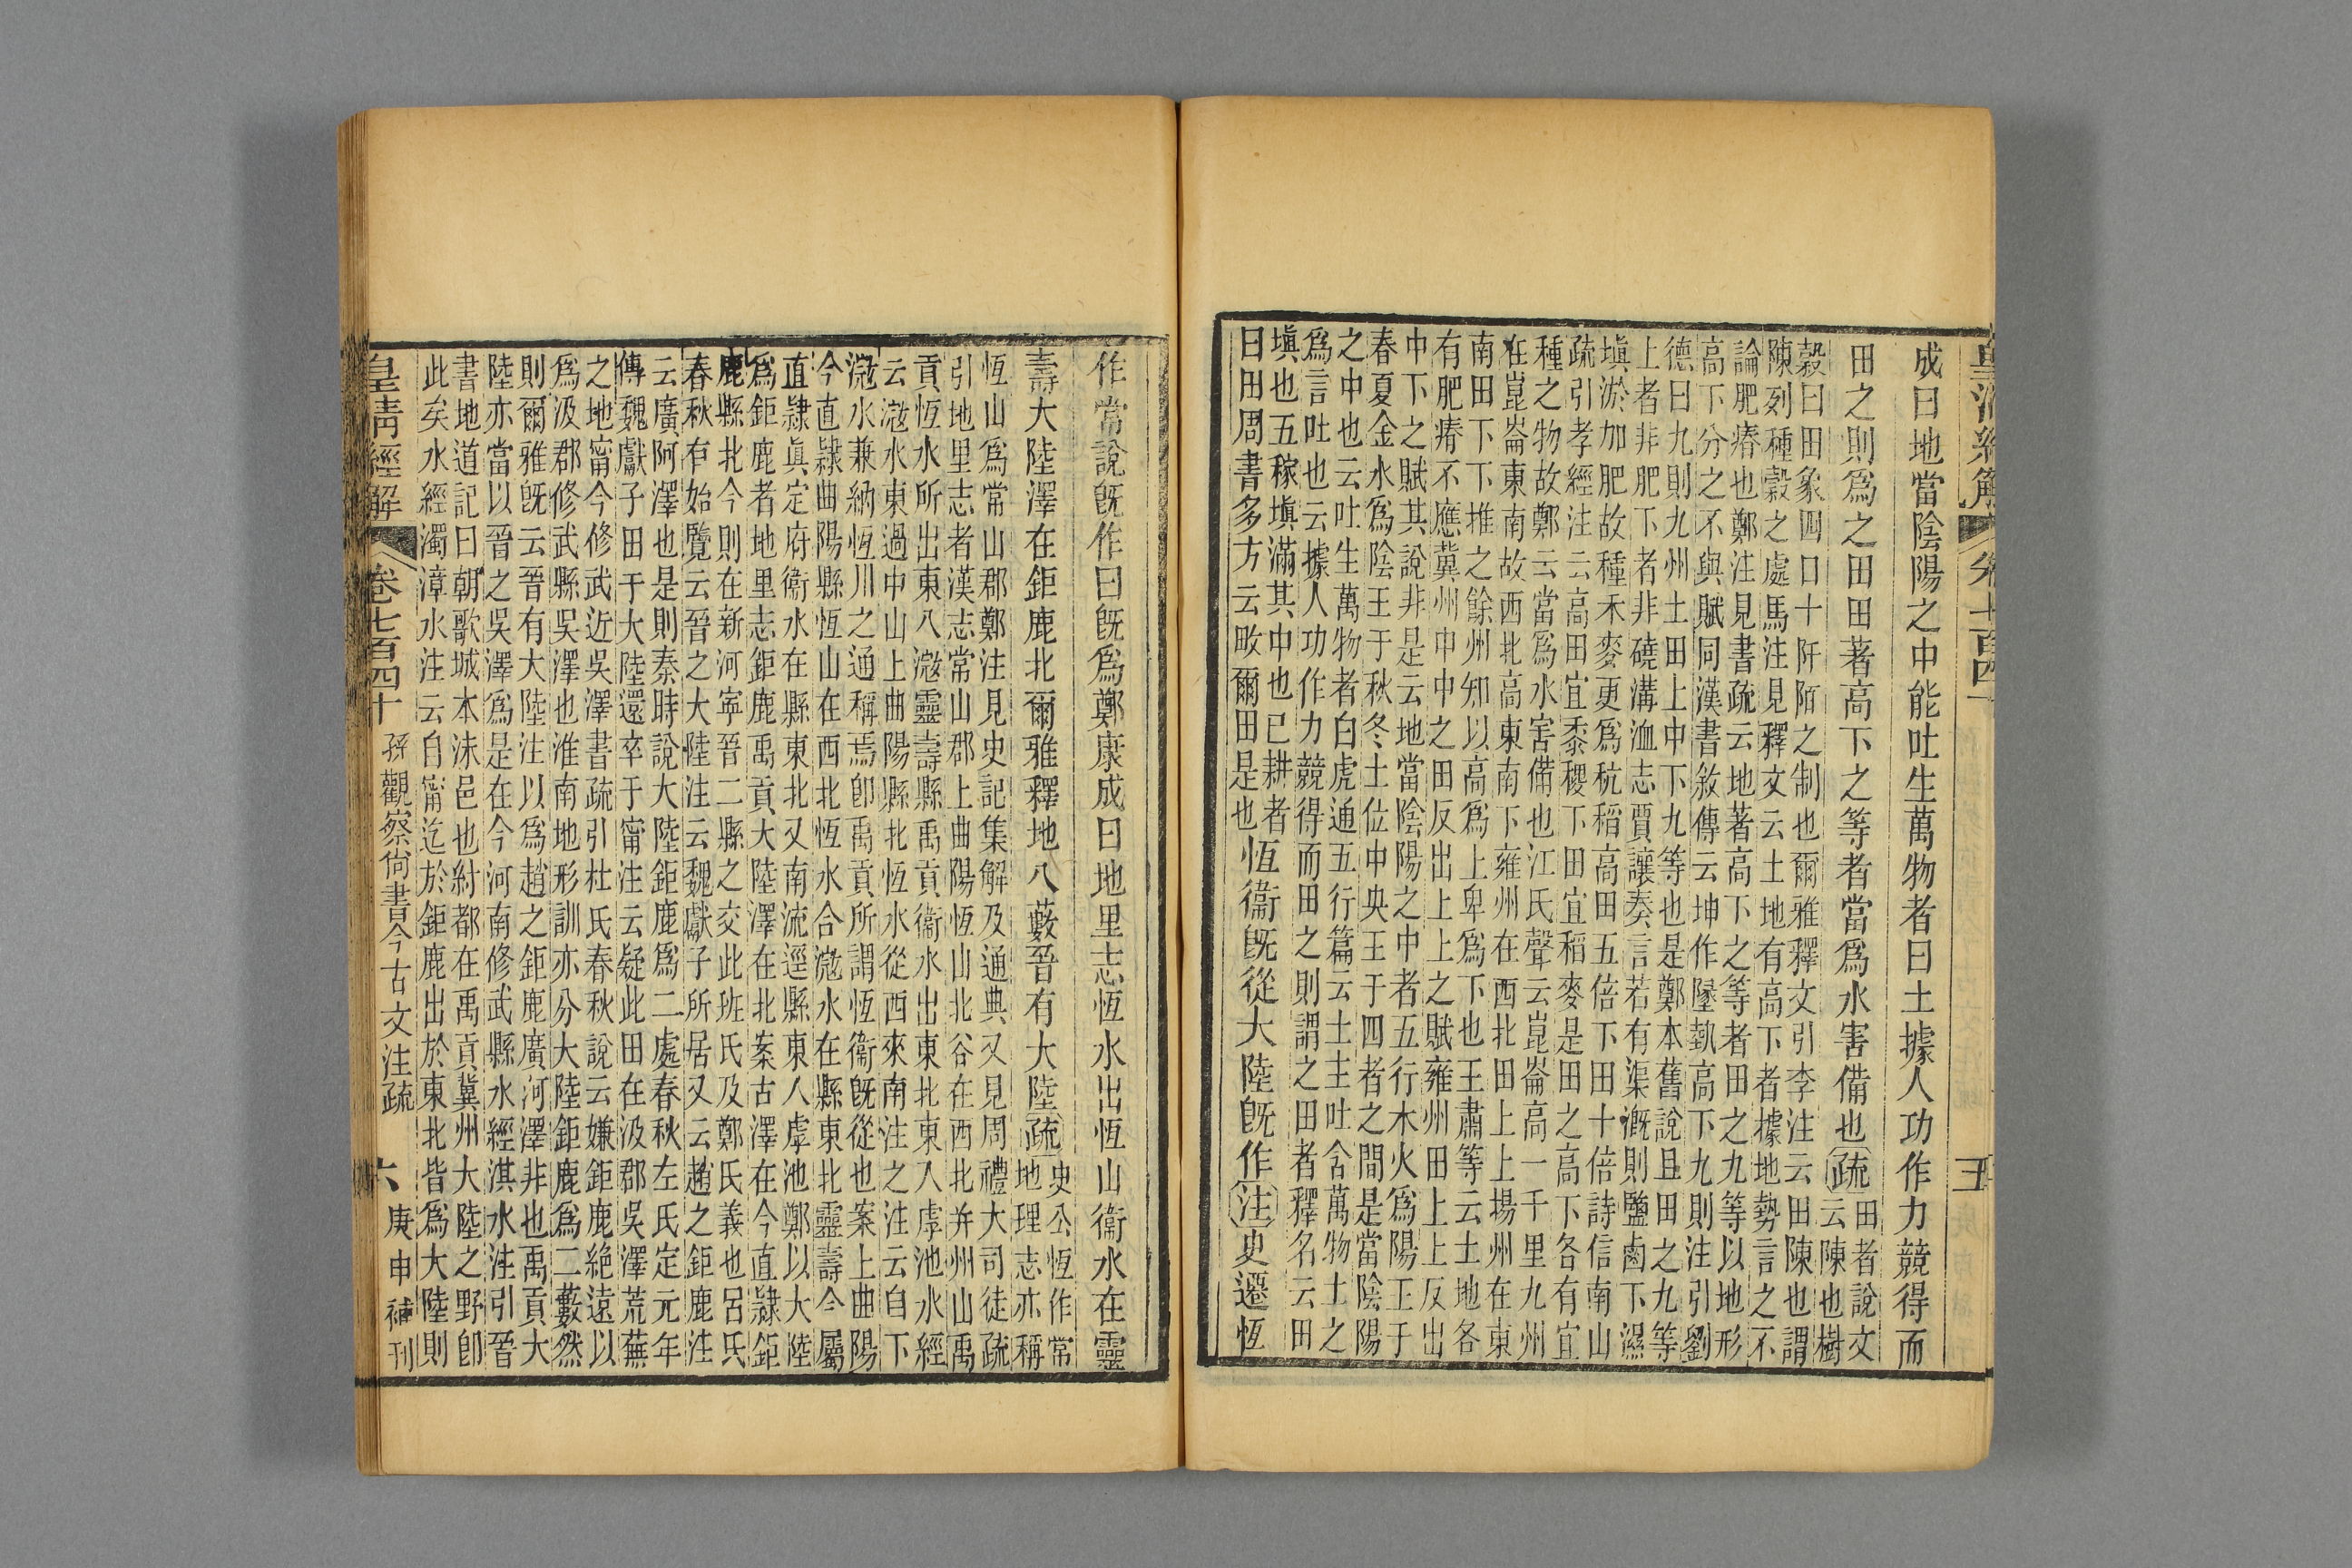 皇清經解
卷七百四十
五
成曰地當陰陽之中能吐生萬物者曰土據人功作力競得而
田之則爲之田田著高下之等者當爲水害備也疏田者說文
云陳也樹
穀曰田象四口十阡陌之制也爾雅釋文引李注云田陳也謂
陳列種穀之處馬注見釋文云土地有高下者據地勢言之不
論肥瘠也鄭注見書疏云地著高下之等者田之九等以地形
高下分之不與賦同漢書敘傳云坤作墬埶高下九則注引劉
德曰九則九州土田上中下九等也是鄭本舊說且田之九等
上者非肥下者非磽溝洫志賈讓奏言若有渠漑則鹽鹵下濕
塡淤加肥故種禾麥更爲秔稻高田五倍下田十倍詩信南山
疏引孝經注云高田宜黍稷下田宜稻麥是田之高下各有宜
種之物故鄭云當爲水害備也江氏聲云崑崙高一千里九州
在崑崙東南故西北高東南下雍州在西北田上上揚州在東
南田下下推之餘州知以高爲上卑爲下也王肅等云土地各
有肥瘠不應冀州中中之田反出上上之賦雍州田上上反出
中下之賦其說非是云地當陰陽之中者五行木火爲陽王于
春夏金水爲陰王于秋冬土位中央王于四者之間是當陰陽
之中也云吐生萬物者白虎通五行篇云土主吐含萬物土之
爲言吐也云據人功作力競得而田之則謂之田者釋名云田
塡也五稼塡滿其中也已耕者
曰田周書多方云畋爾田是也恆衞旣從大陸旣作注史遷恆
作常說旣作曰旣爲鄭康成曰地里志恆水出恆山衞水在靈
壽大陸澤在鉅鹿北爾雅釋地八藪晉有大陸疏史公恆作常
地理志亦稱
恆山爲常山郡鄭注見史記集解及通典又見周禮大司徒疏
引地里志者漢志常山郡上曲陽恆山北谷在西北并州山禹
貢恆水所出東入滱靈壽縣禹貢衞水出東北東入虖池水經
云滱水東過中山上曲陽縣北恆水從西來南注之注云自下
滱水兼納恆川之通稱焉卽禹貢所謂恆衞旣從也案上曲陽
今直隸曲陽縣恆山在西北恆水合滱水在縣東北靈壽今屬
直隸眞定府衞水在縣東北又南流逕縣東入虖池鄭以大陸
爲鉅鹿者地里志鉅鹿禹貢大陸澤在北案古澤在今直隸鉅
鹿縣北今則在新河寧晉二縣之交此班氏及鄭氏義也呂氏
春秋有始覽云晉之大陸注云魏獻子所居又云趙之鉅鹿注
云廣阿澤也是則秦時說大陸鉅鹿爲二處春秋左氏定元年
傳魏獻子田于大陸還卒于甯注云疑此田在汲郡吳澤荒蕪
之地甯今修武近吳澤書疏引杜氏春秋說云嫌鉅鹿絶遠以
爲汲郡修武縣吳澤也淮南地形訓亦分大陸鉅鹿爲二藪然
則爾雅旣云晉有大陸注以爲趙之鉅鹿廣河澤非也禹貢大
陸亦當以晉之吳澤爲是在今河南修武縣水經淇水注引晉
書地道記曰朝歌城本沬邑也紂都在禹貢冀州大陸之野卽
此矣水經濁漳水注云自甯迄於鉅鹿出於東北皆爲大陸則
皇清經解
卷七百四十
孫觀察尙書今古文注疏
六
庚申補刊